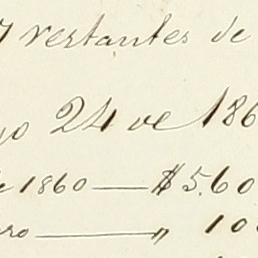 y restantes de
24 de 186
1860 — $5.60
ro — " 10